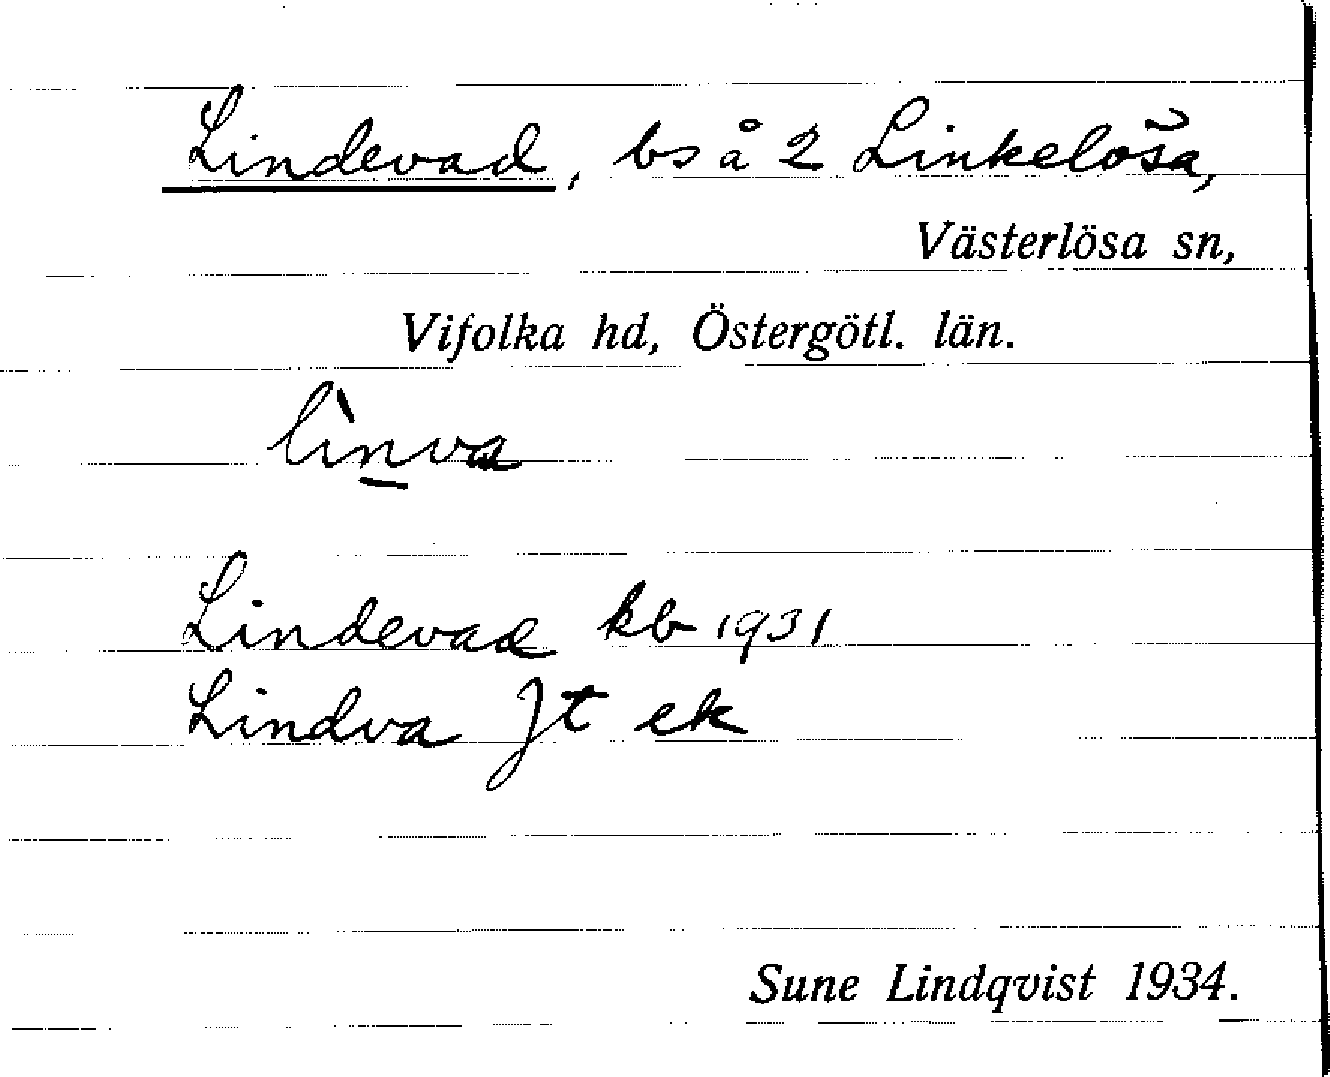 Lindevad, bs å 2 Linkelösa,
Västerlösa sn,
Vifolka hd, Östergötl. län.
lìn̲va
Lindevad kb 1931
Lindva Jt ek
Sune Lindqvist 1934.